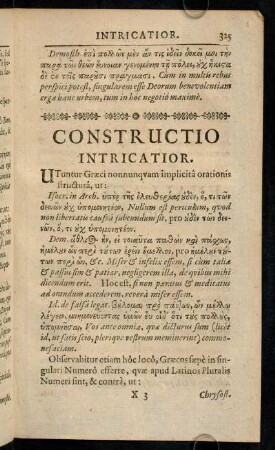 INTRICATIOR. 325
Demosth. ἐπὶ πολλῶν μὲν ἄν τις ἰδεῖν δοκεῖ μοι τὴν
παρὰ τῶν θεῶν εὔνοιαν γενομένην τῇ πόλει, οὐχ ἥκιστα
δὲ ἐν τοῖς παροῦσι πράγμασι. Cum in multis rebus
perspici potest, singularem esse Deorum benevolentiam
erga hanc urbem, tum in hoc negotio maximè.
CONSTRUCTIO
INTRICATIOR.
UTuntur Græci nonnunquam implicitâ orationis
structurâ, ut:
Isocr. in Arch. ὑπὲρ τῆς ἐλευθερίας οὐδὲν, ὅ, τι τῶν
δεινῶν οὐχ ὑπομενετέον. Nullum est periculum, quod
non libertatis causâ subeundum sit, pro οὐδὲν τῶν δει-
νῶν, ὅ, τι οὐχ ὑπομενετέον.
Dem. ἄθλιον ἦν, εἰ τοιαῦτα παθὼν καὶ πάσχων,
ἠμέλουν ὧν περὶ τούτων ἐρεῖν ἤμελλον, pro ἠμέλουν τού-
των περὶ ὧν, &c. Miser & infelix essem, si cum talia
& passus sim & patiar, negligerem illa, de quibus mihi
dicendum erit. Hoc est, si non paratus & meditatus
ad agendum accederem, reverà miser essem.
Id. de falsâ legat. βούλομαι πρὸ πάντων, ὧν μέλλω
λέγειν, μνημονεύοντας ὑμῶν εὖ οἶδ' ὅτι τοὺς πολλοὺς,
ὑπομνῆσαι, Vos ante omnia, quæ dicturus sum (licèt
id, ut satis scio, plerique vestrum meminerint) commo-
nefaciam.
Observabitur etiam hôc locô, Græcos sæpè in sin-
gulari Numerô efferre, quæ apud Latinos Pluralis
Numeri sint, & contrà, ut:
X 3 Chrysost.